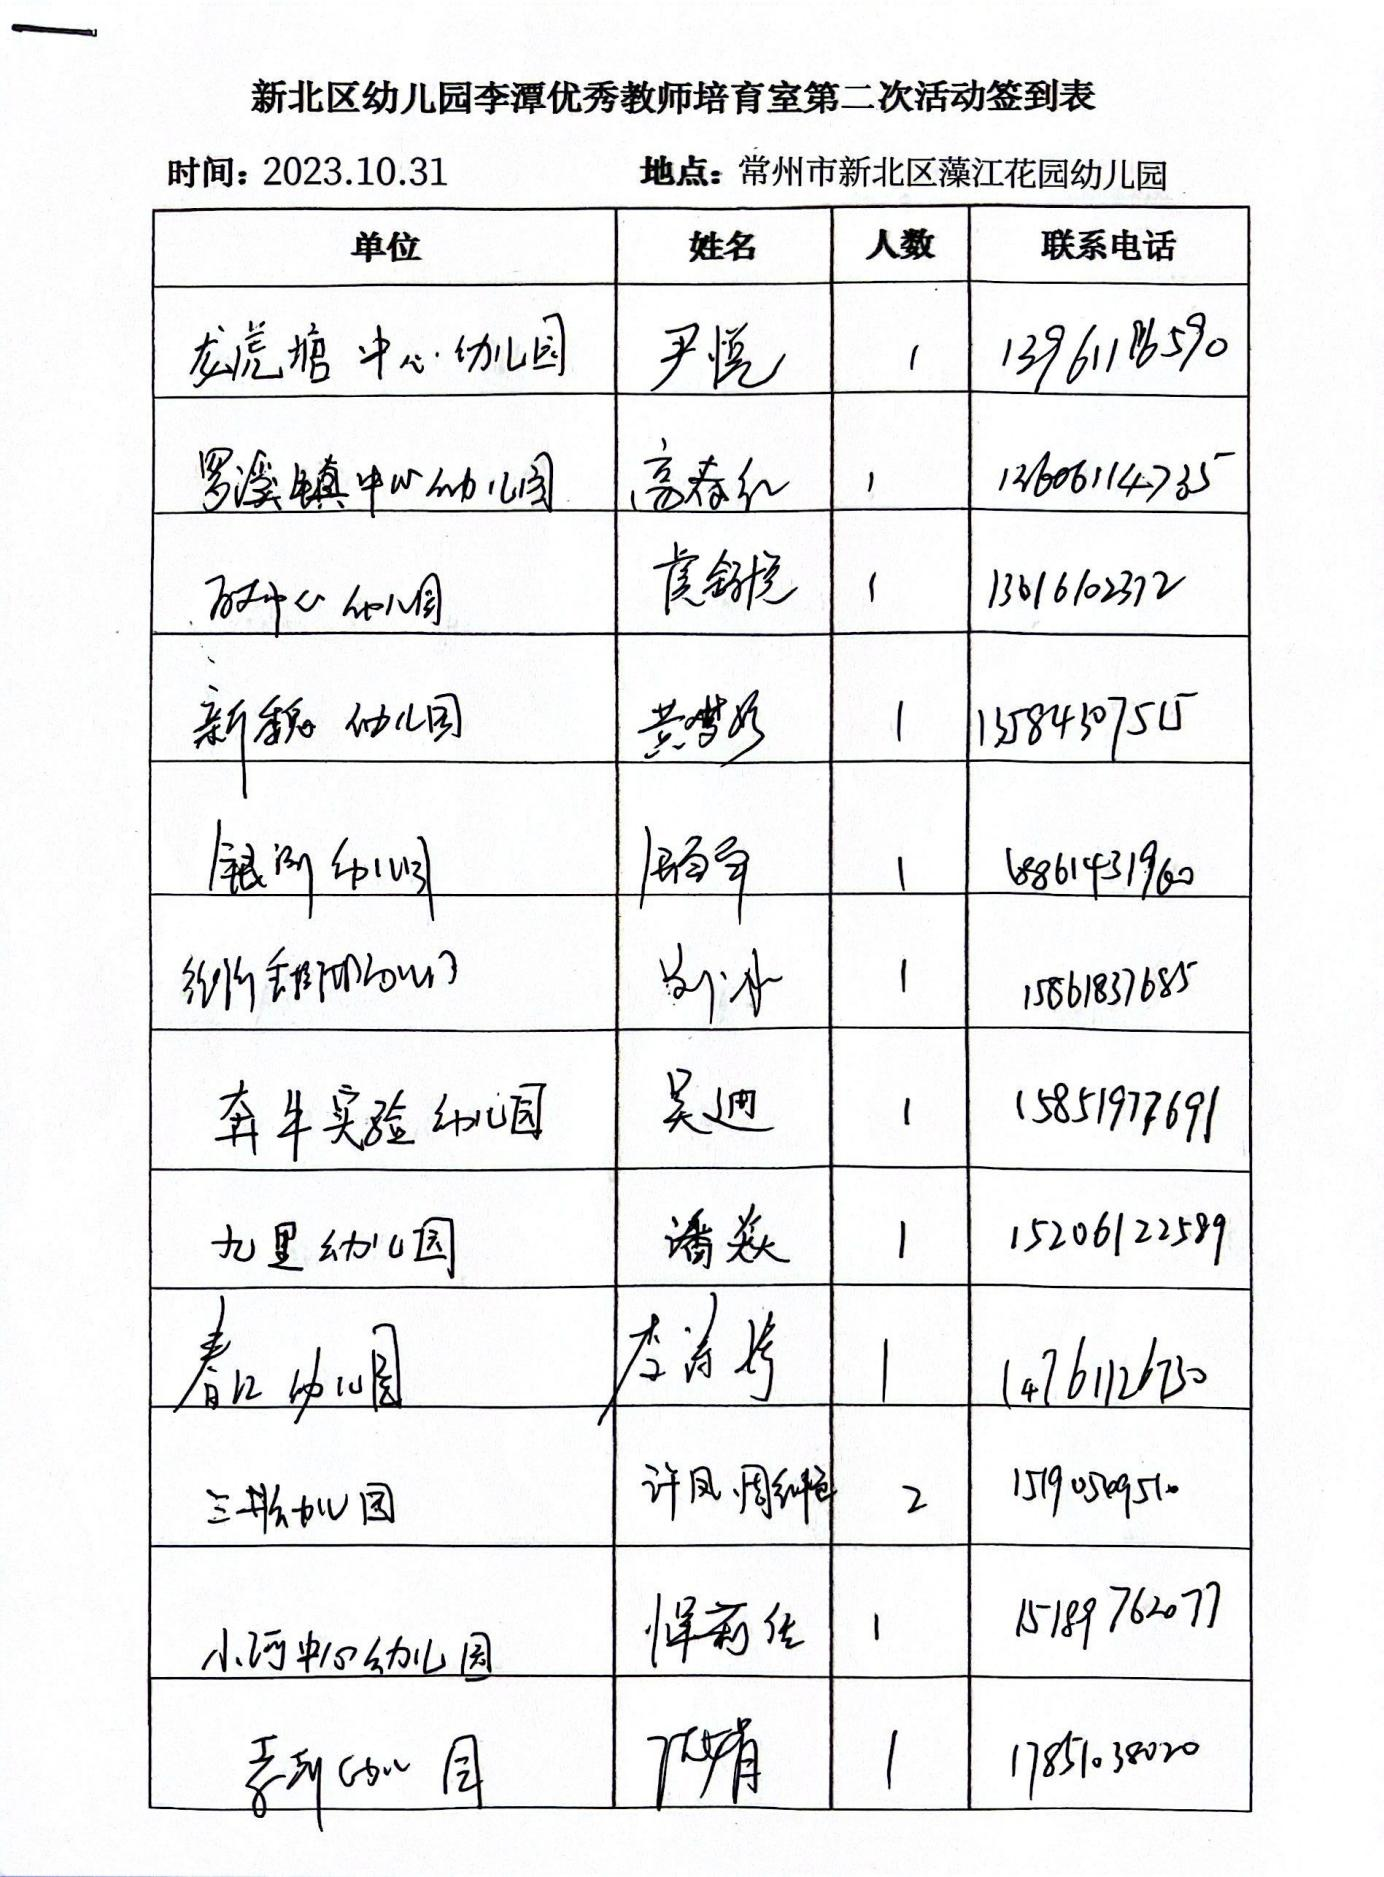 新北区幼儿园李潭优秀教师培育室第二次活动签到表
时间：2023.10.31 地点：常州市新北区藻江花园幼儿园
单位 姓名 人数 联系电话
龙虎塘中心幼儿园 尹悦 1 13961186590
罗溪镇中心幼儿园 高春红 1 13606114735
中心幼儿园 1 13616102372
新魏幼儿园 黄梦 1 13584307515
银河幼儿园 1
1 15861837685
奔牛实验幼儿园 吴迪 1 15851977691
九里幼儿园 潘焱 1 15206122589
春江幼儿园 李 1 14761126730
三井幼儿园 许凤 周 2
小河中心幼儿园 恽莉佳 1 15189762077
幼儿园 1 17851038020